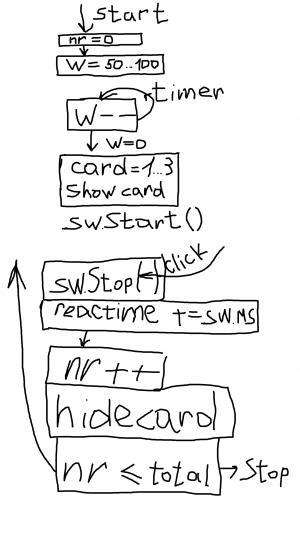 start
nr = 0
W = 50..100
timer
W--
W=0
card=1..3
Show card
sw.Start()
click
sw.Stop()
reactime += sw.MS
nr ++
hidecard
nr ≤ total → Stop